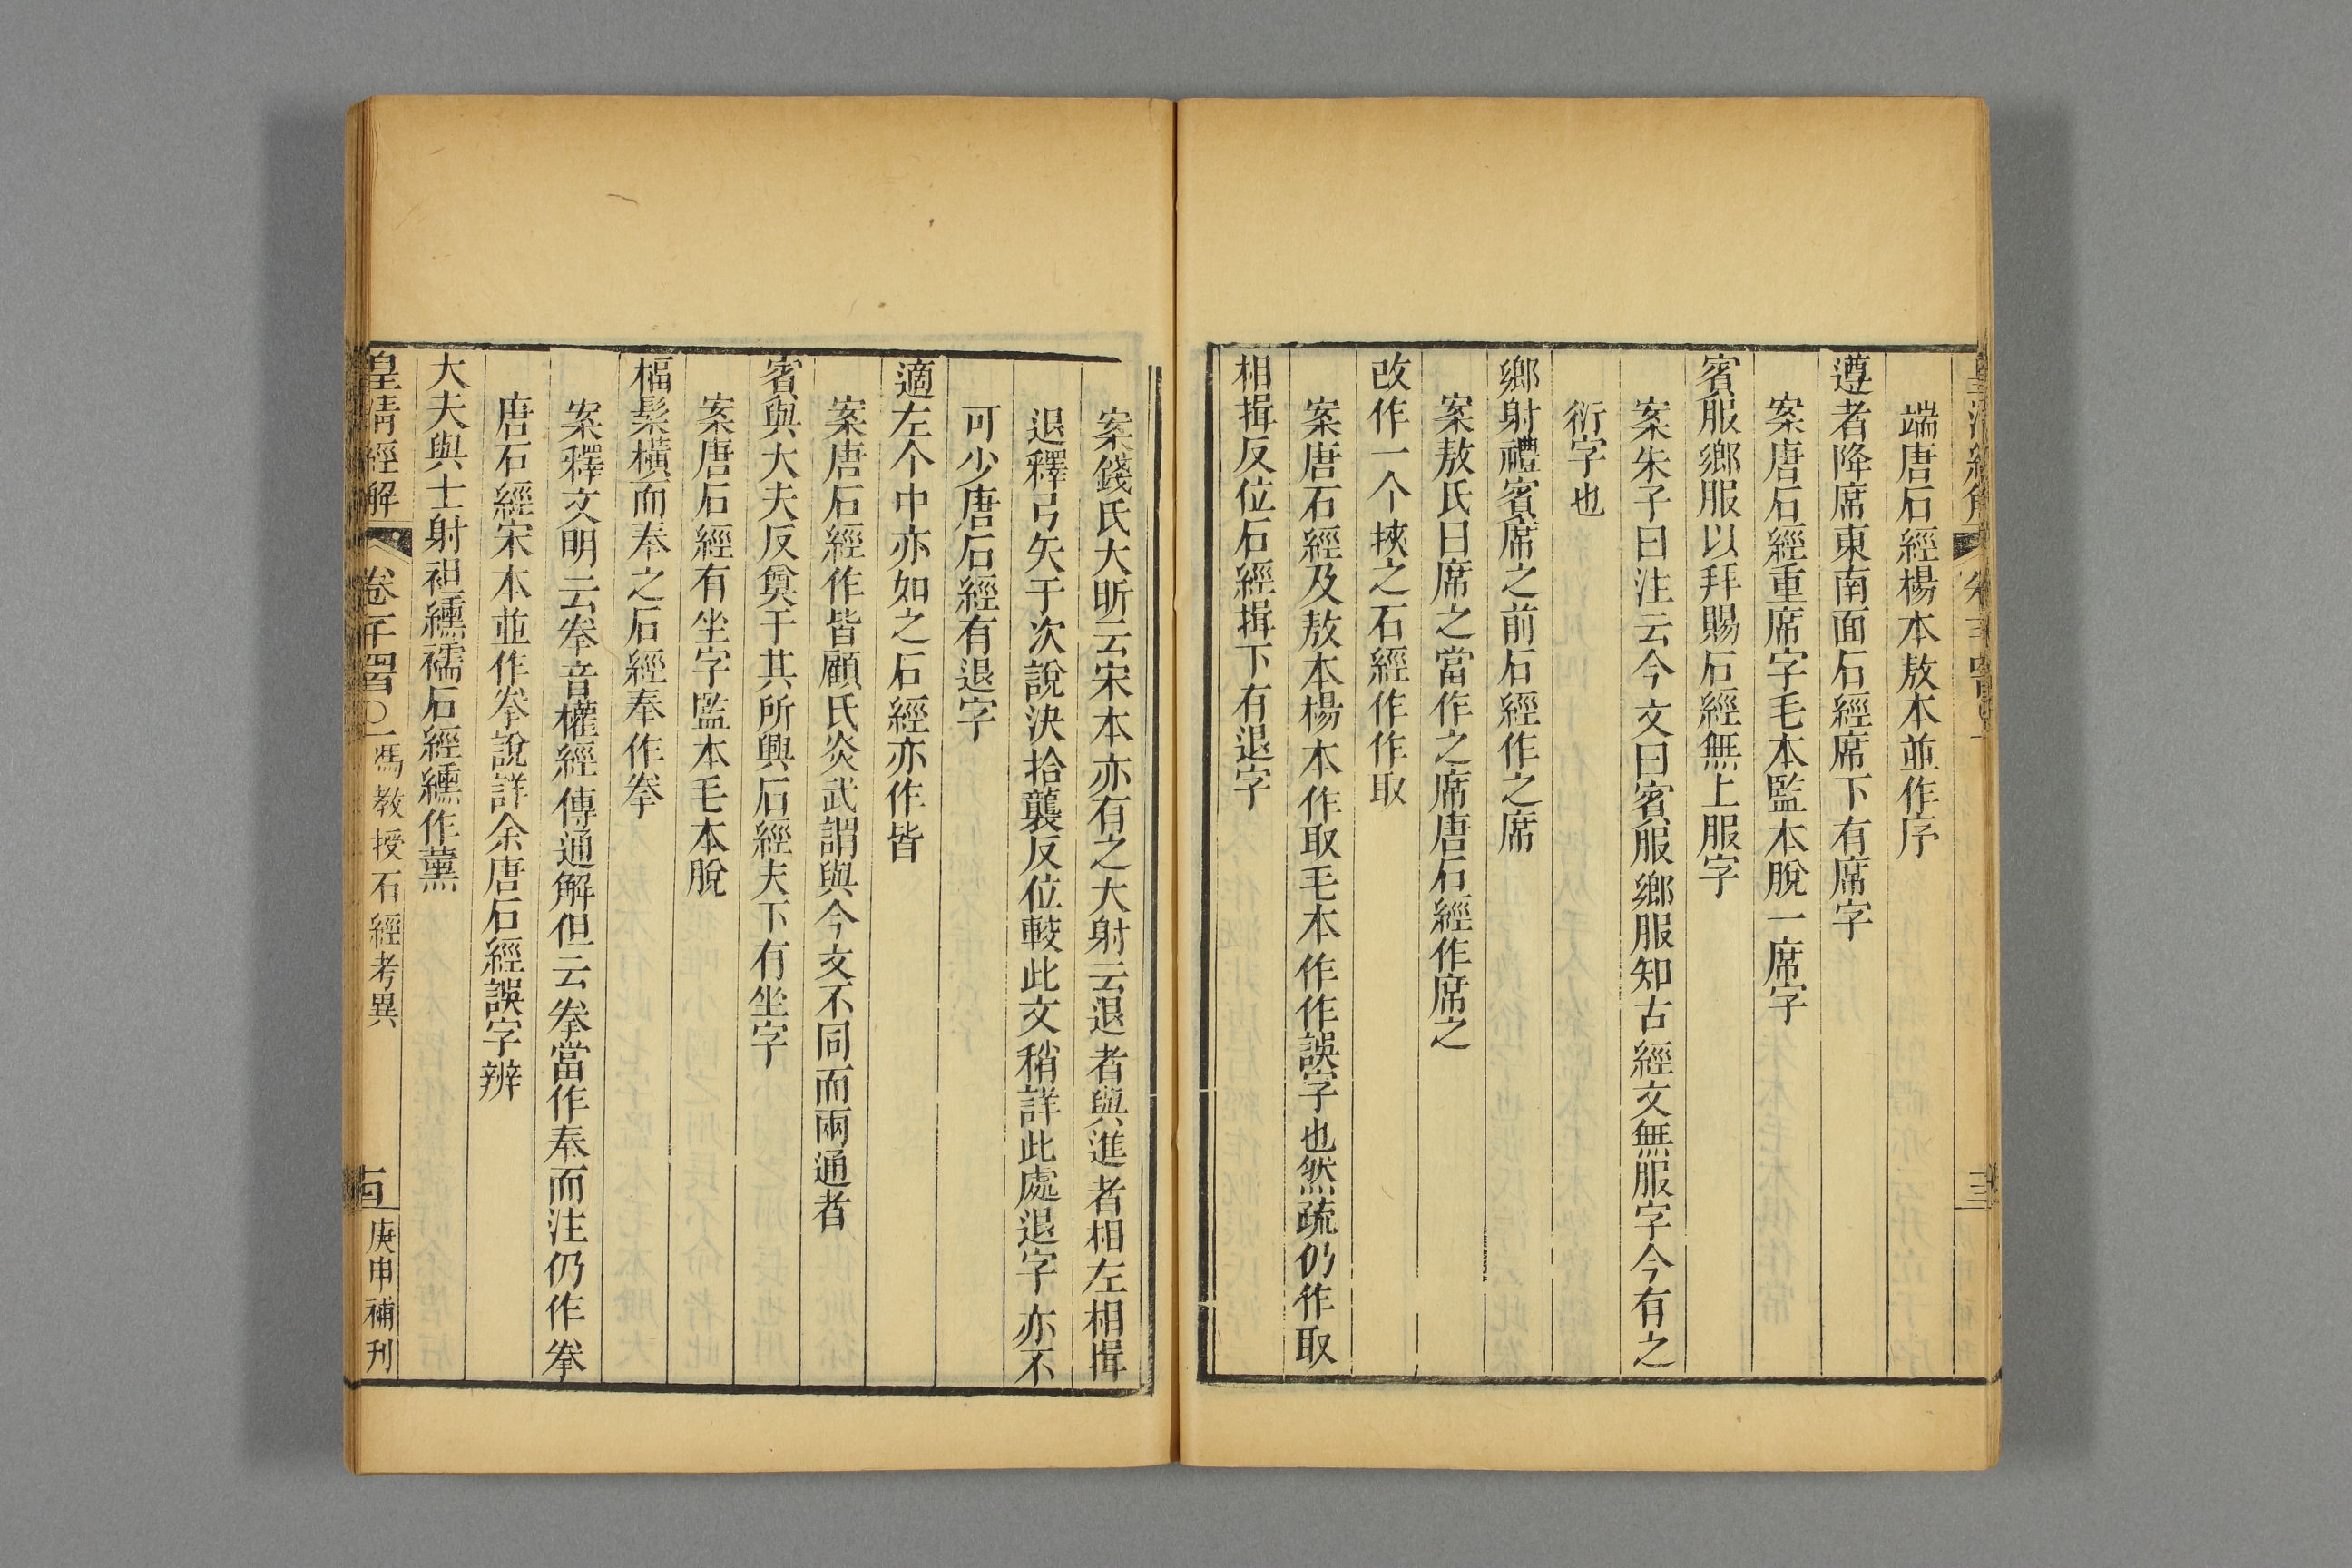 端唐石經楊本敖本並作序
遵者降席東南面石經席下有席字
案唐石經重席字毛本監本脫一席字
賓服鄉服以拜賜石經無上服字
案朱子曰注云今文曰賓服鄉服知古經文無服字今有之
衍字也
鄉射禮賓席之前石經作之席
案敖氏曰席之當作之席唐石經作席之
改作一个挾之石經作作取
案唐石經及敖本楊本作取毛本作作誤字也然疏仍作取
相揖反位石經揖下有退字
案錢氏大昕云宋本亦有之大射云退者與進者相左相揖
退釋弓矢于次說決拾襲反位較此文稍詳此處退字亦不
可少唐石經有退字
適左个中亦如之石經亦作皆
案唐石經作皆顧氏炎武謂與今文不同而兩通者
賓與大夫反奠于其所興石經夫下有坐字
案唐石經有坐字監本毛本脫
楅髹橫而奉之石經奉作拳
案釋文明云拳音權經傳通解但云拳當作奉而注仍作拳
唐石經宋本並作拳說詳余唐石經誤字辨
大夫與士射袒纁襦石經纁作薰
皇清經解
馮教授石經考異
庚申補刊